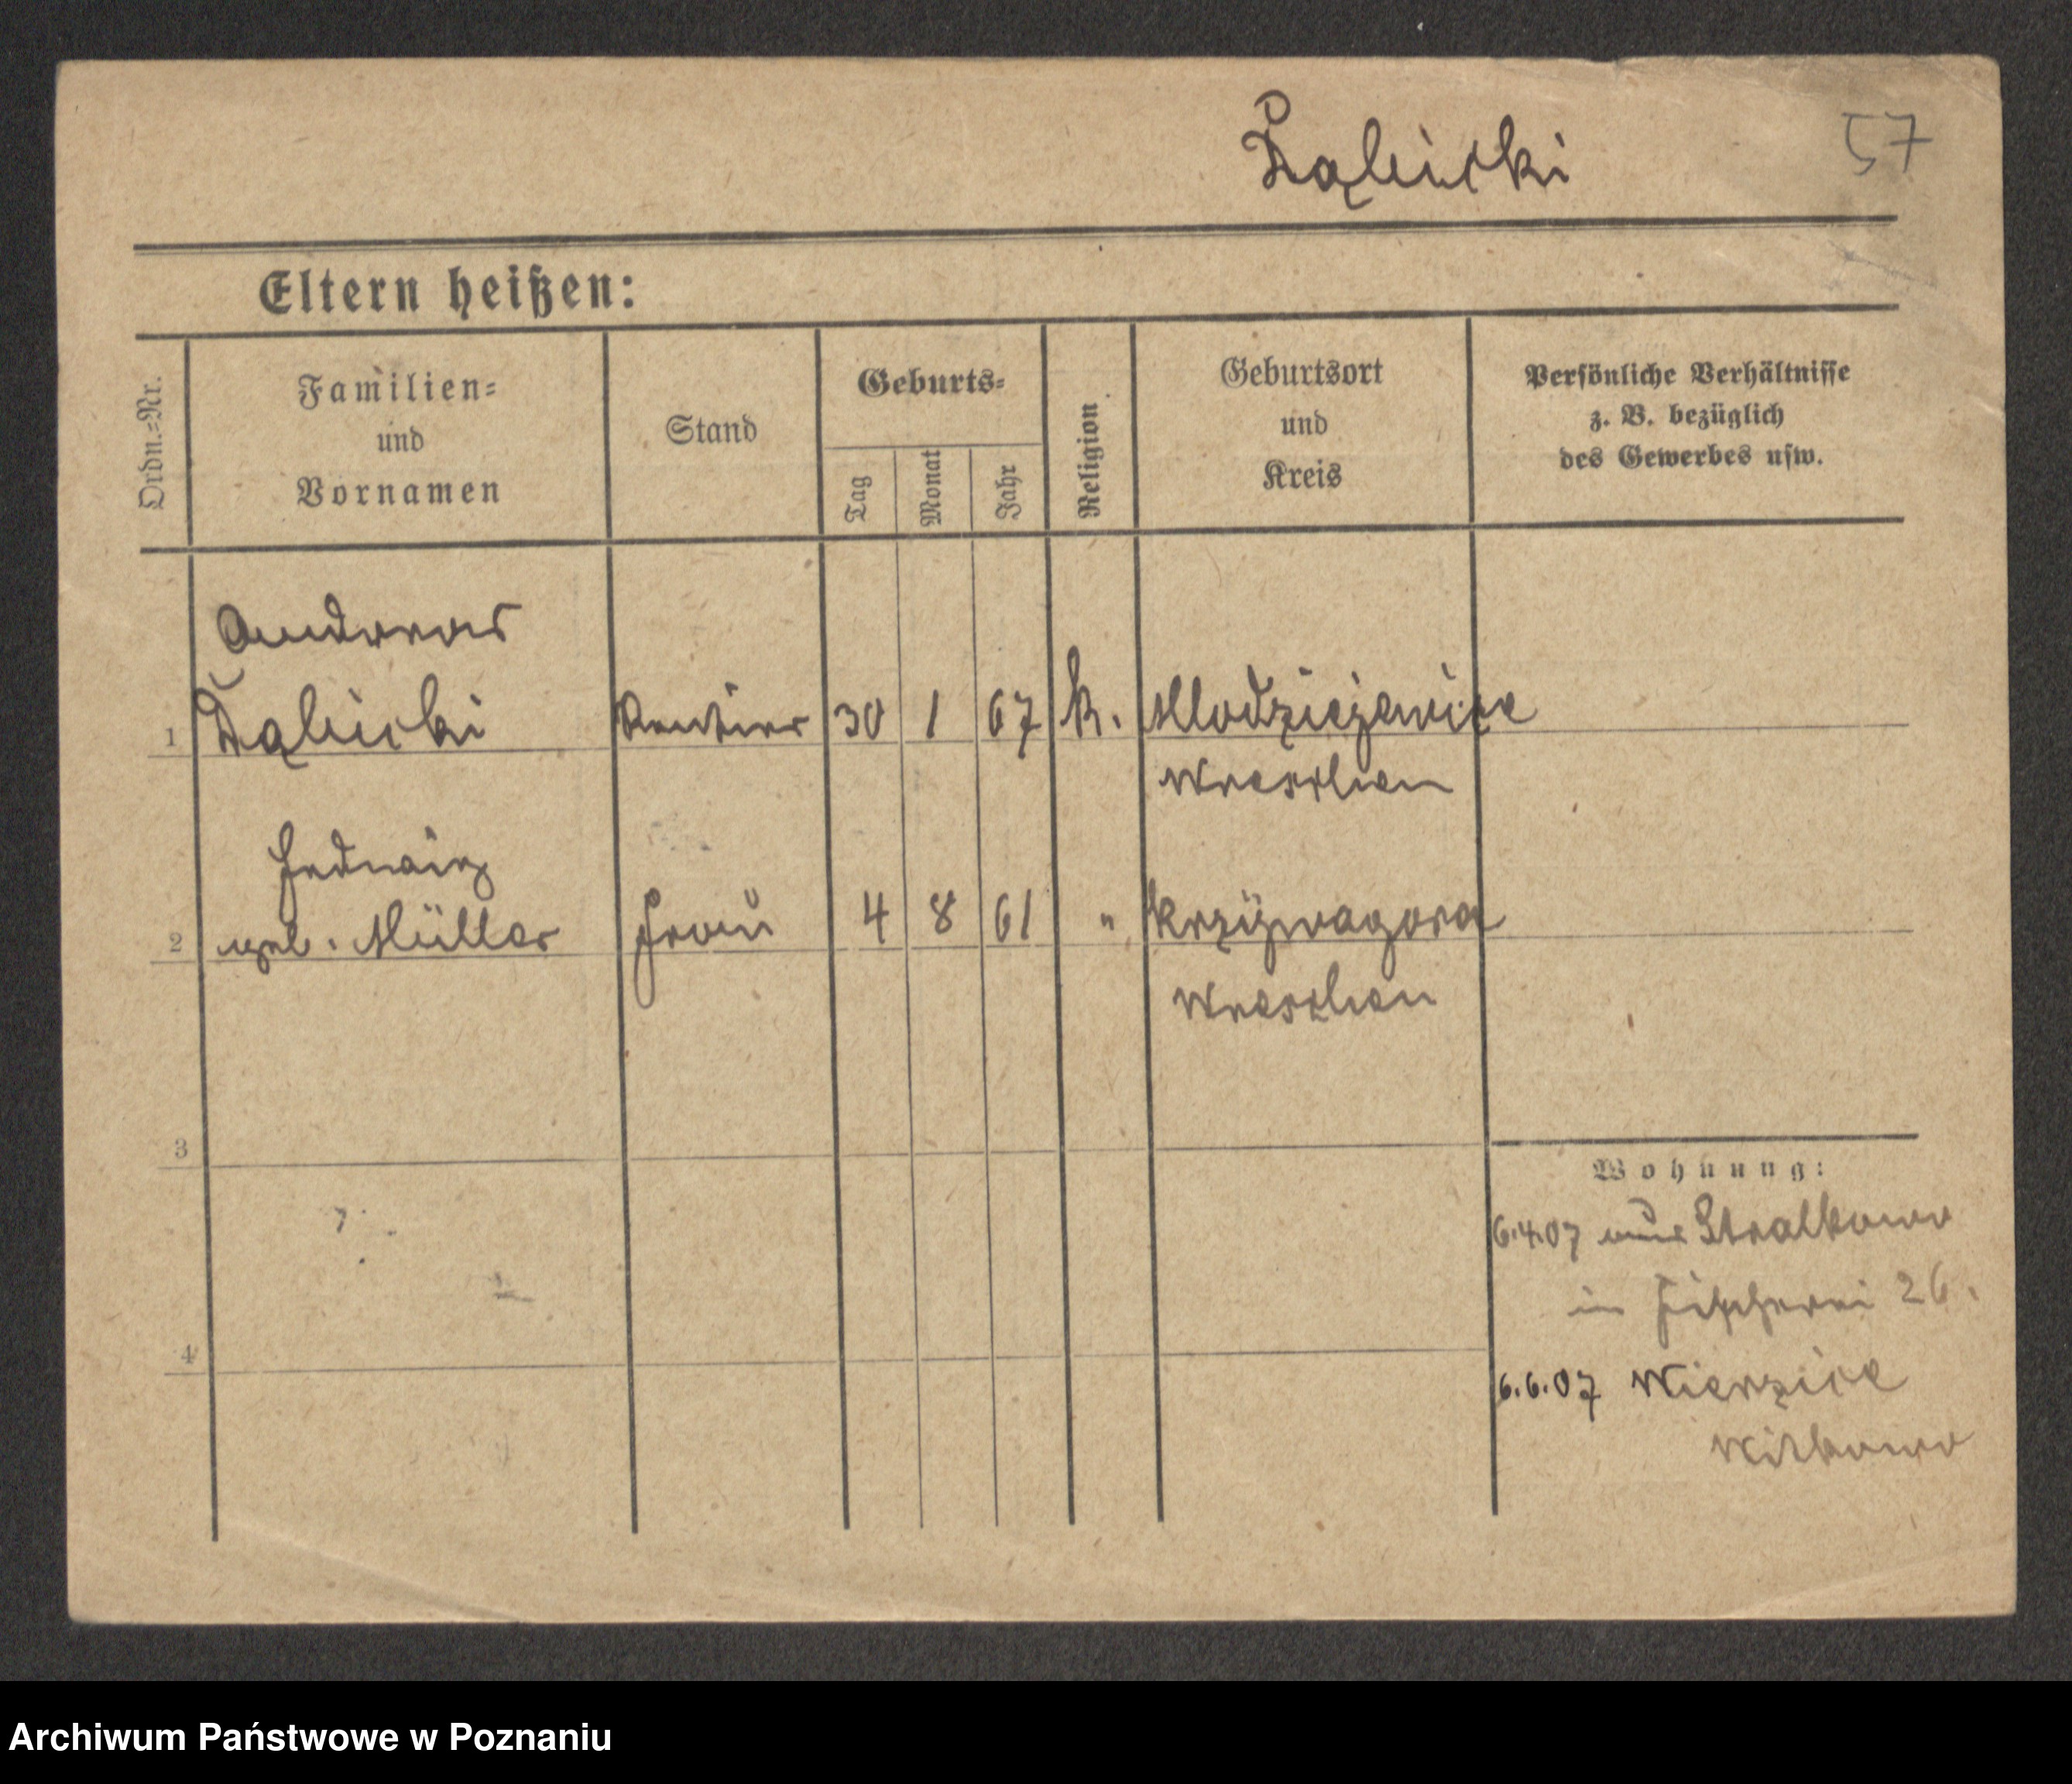 Dąbicki 57
Eltern heißen:
Ordn.=Nr.
Familien=
und
Vornamen
Stand
Geburts=
Tag
Monat
Jahr
Religion
Geburtsort
und
Kreis
Persönliche Verhältnisse
z. B. bezüglich
des Gewerbes usw.
Andreas
1 Dąbicki Rentier 30 1 67 k. Mlodziejewice
Wreschen
Hedwig
2 geb. Müller Frau 4 8 61 " Krzywagora
Wreschen
3
Wohnung:
6.4.07 aus Stralkowo
in Fischerei 26.
4
6.6.07 Wierzice
Witkowo
Archiwum Państwowe w Poznaniu